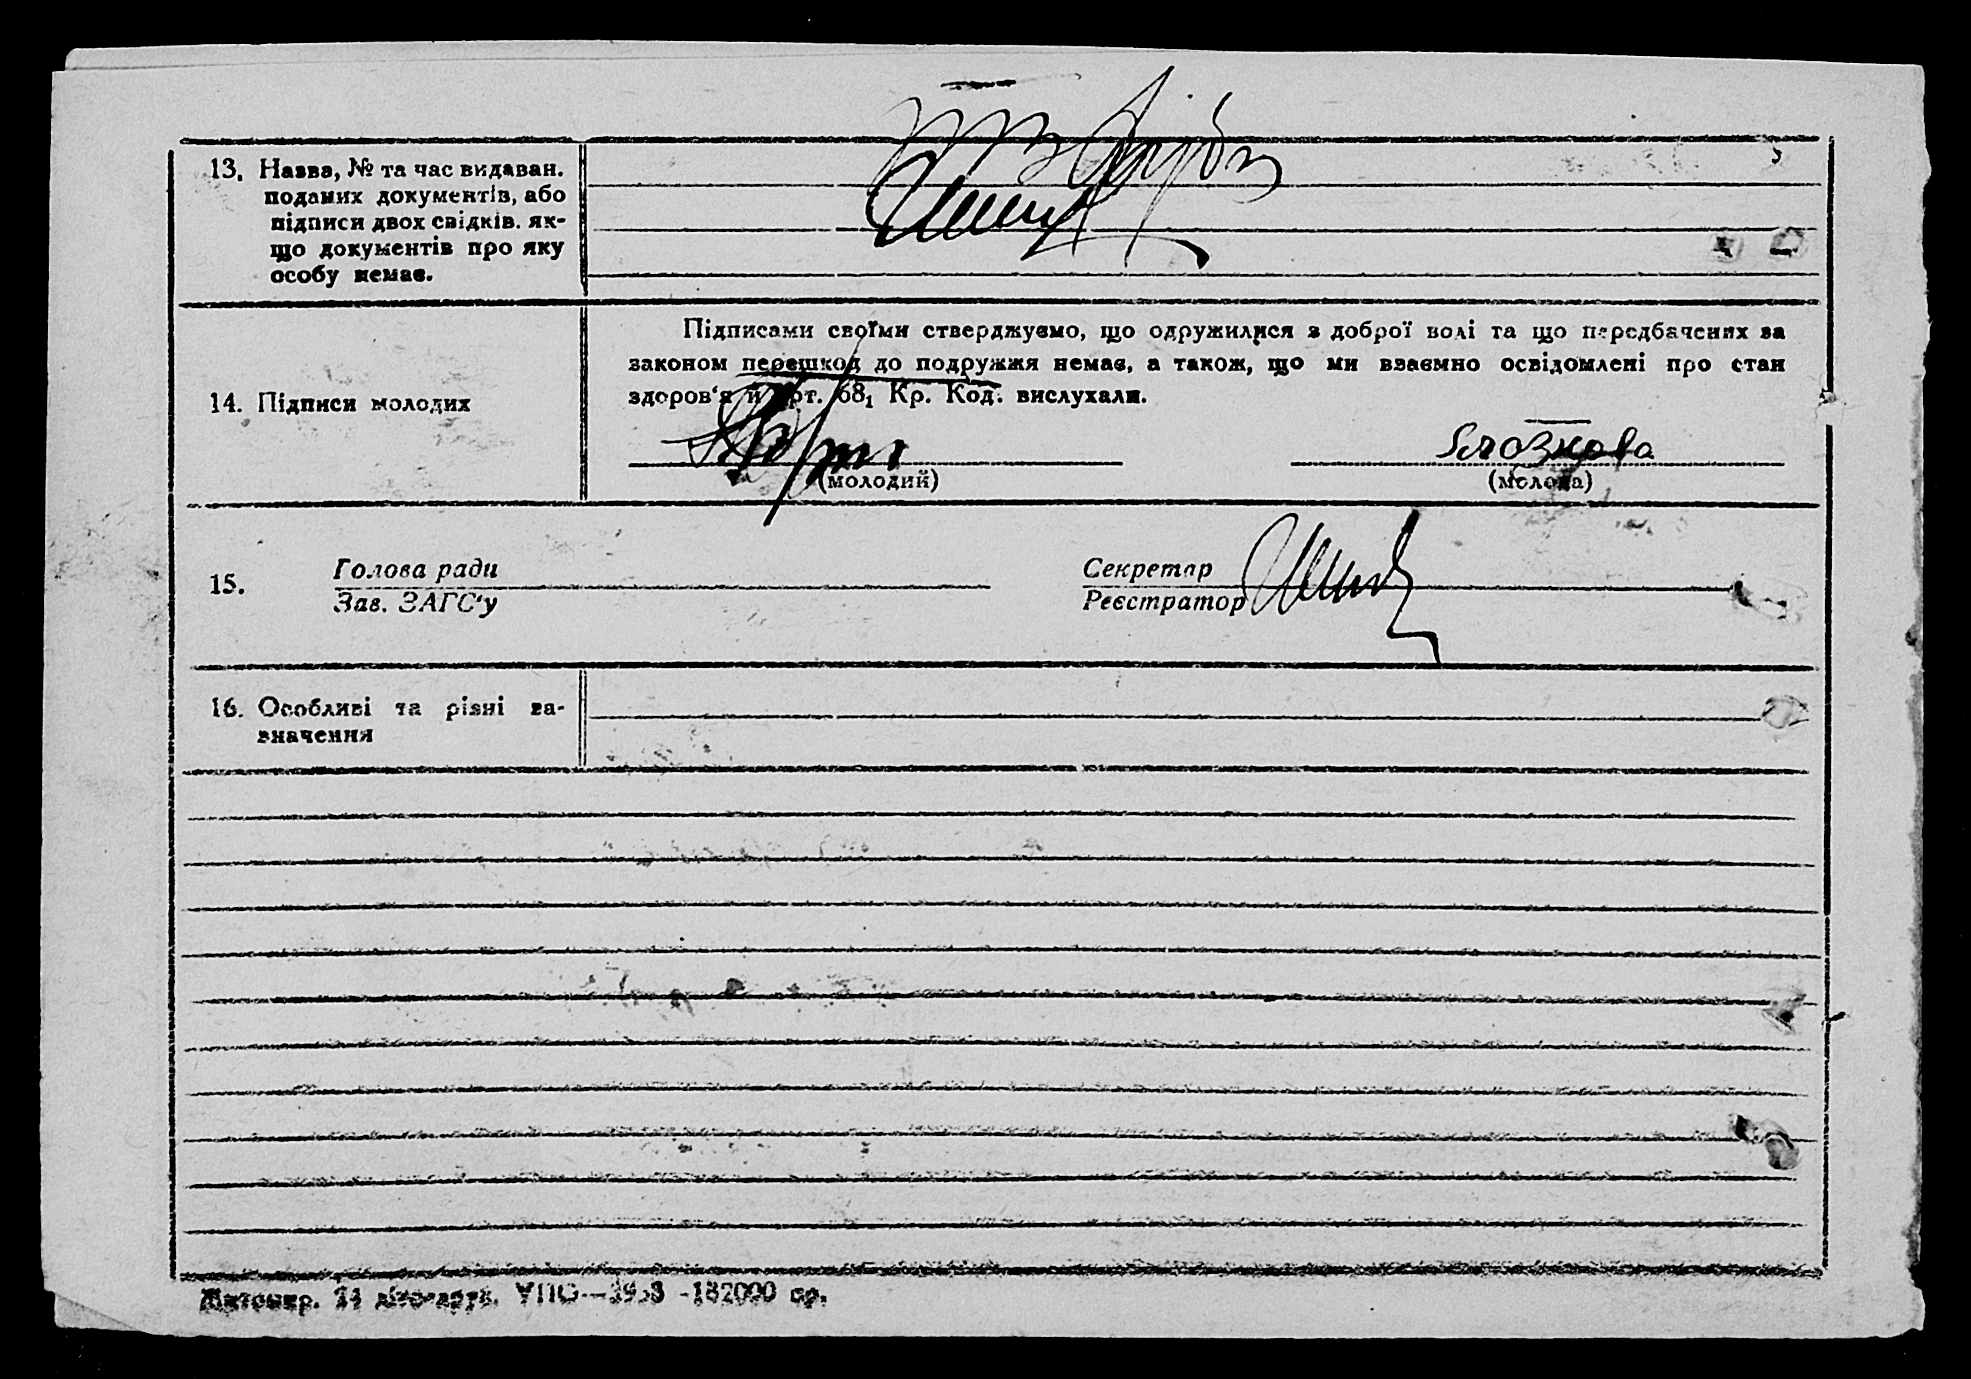 13. Назва, № та час видаван.
поданих документів, або
підписи двох свідків. як-
що документів про яку
особу немає.
14. Підписи молодих
Підписами своїми стверджуємо, що одружилися з доброї волі та що передбачених за
законом перешкод до подружжя немає, а також, що ми взаємно освідомлені про стан
здоров'я й арт. 68₁ Кр. Код. вислухали.
(молодий)
(молода)
15.
Голова ради
Зав. ЗАГС'у
Секретар
Реєстратор
16. Особливі та різні за-
значення
Житомир.
182000 пр.